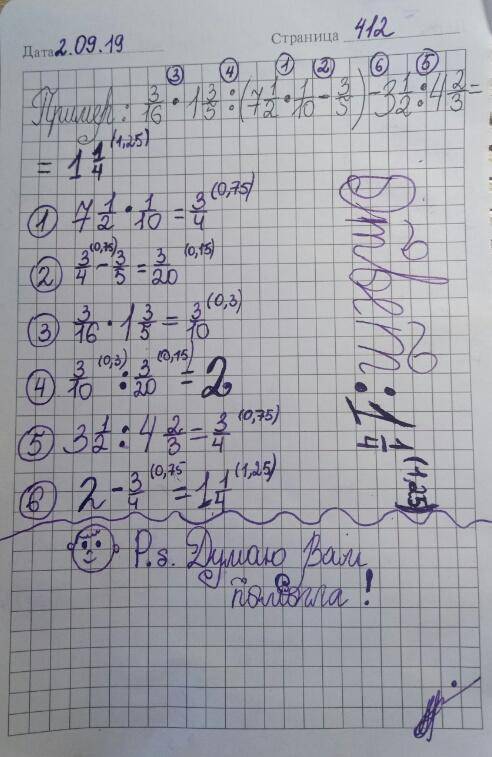 Дата 2.09.19 Страница 412
③ ④ ① ② ⑥ ⑤
Пример: 3/16 · 1 3/5 : (7 1/2 · 1/10 - 3/5) - 3 1/2 : 4 2/3 =
= 1 1/4 (1,25)
① 7 1/2 · 1/10 = 3/4 (0,75)
② 3/4 (0,75) - 3/5 = 3/20 (0,15)
③ 3/16 · 1 3/5 = 3/10 (0,3)
④ 3/10 (0,3) : 3/20 (0,15) = 2
⑤ 3 1/2 : 4 2/3 = 3/4 (0,75)
⑥ 2 - 3/4 (0,75 = 1 1/4 (1,25)
Ответ: 1 1/4 (1,25)
P.s. Думаю Вам
помогла!